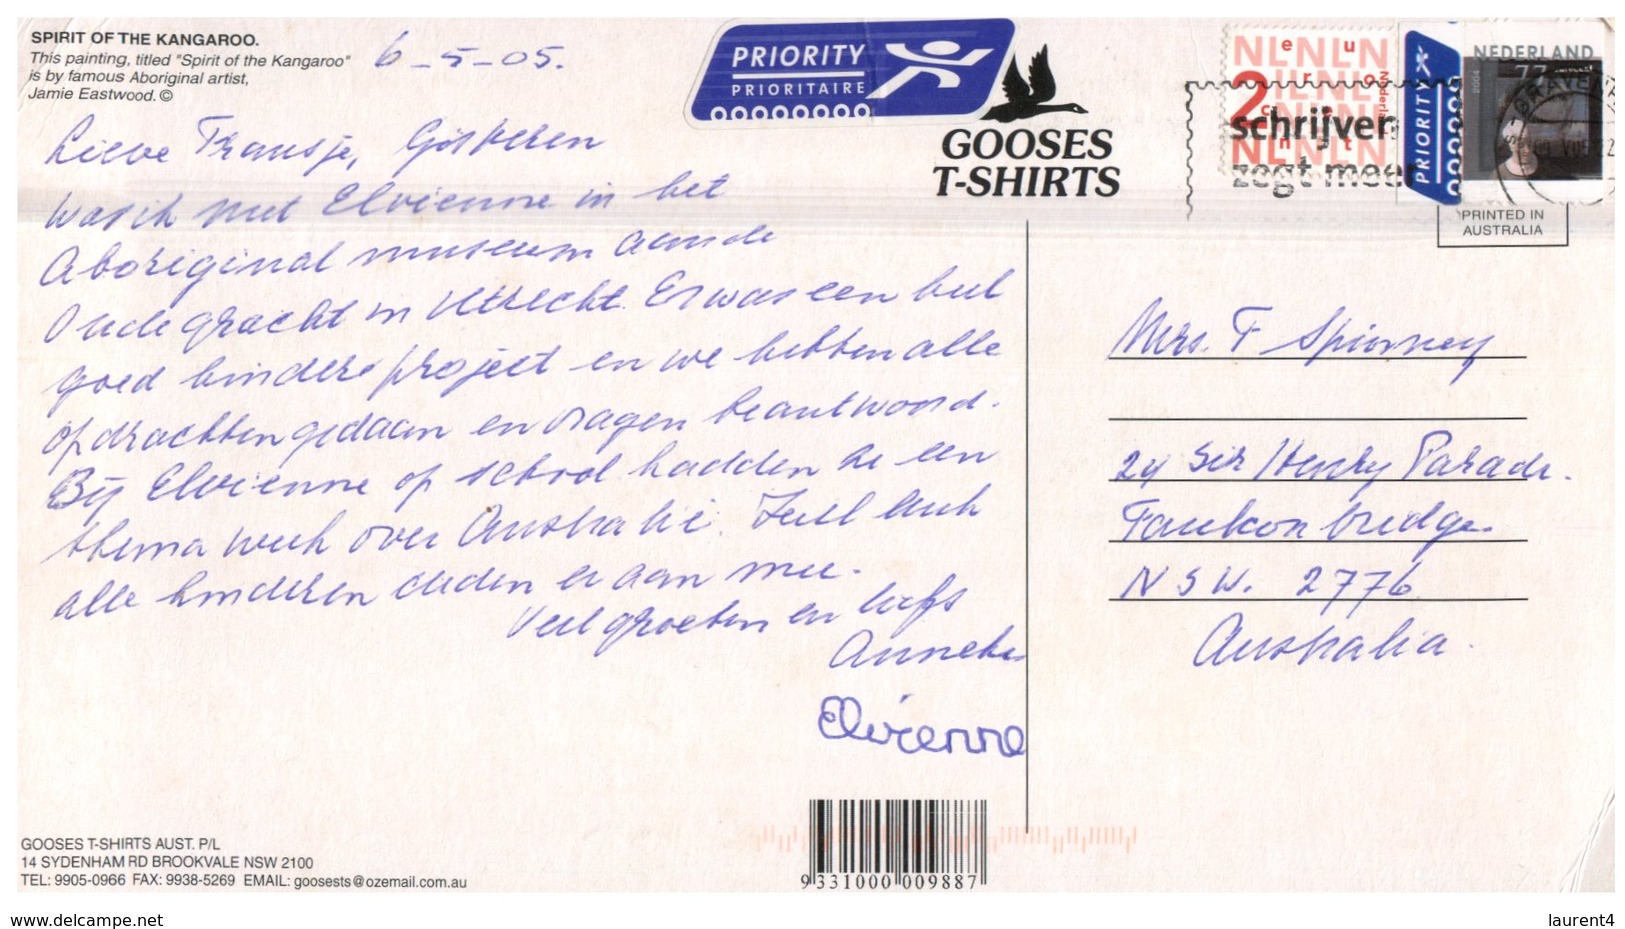 SPIRIT OF THE KANGAROO.
This painting, titled "Spirit of the Kangaroo"
is by famous Aboriginal artist,
Jamie Eastwood. ©
6-5-05.
Lieve Fransje, Gisteren
was ik met Elvienne in het
Aboriginal museum aan de
Oude gracht in Utrecht. Er was een heel
goed kinderproject en we hebben alle
opdrachten gedaan en vragen beantwoord.
Bij Elvienne op school hadden ze een
thema week over Australië. Juul en
alle kinderen deden er aan mee.
Veel groeten en liefs
Anneke
Elvienne
PRIORITY
PRIORITAIRE
GOOSES
T-SHIRTS
NLNLNL
2
euro
cent
Nederland
schrijven
zegt meer
PRIORITY
NEDERLAND
77
2004
PRINTED IN
AUSTRALIA
Mrs. F Spinney
24 Sir Henry Parade.
Faulconbridge
NSW. 2776
Australia.
GOOSES T-SHIRTS AUST. P/L
14 SYDENHAM RD BROOKVALE NSW 2100
TEL: 9905-0966 FAX: 9938-5269 EMAIL: goosests@ozemail.com.au
9 331000 009887
www.delcampe.net
laurent4